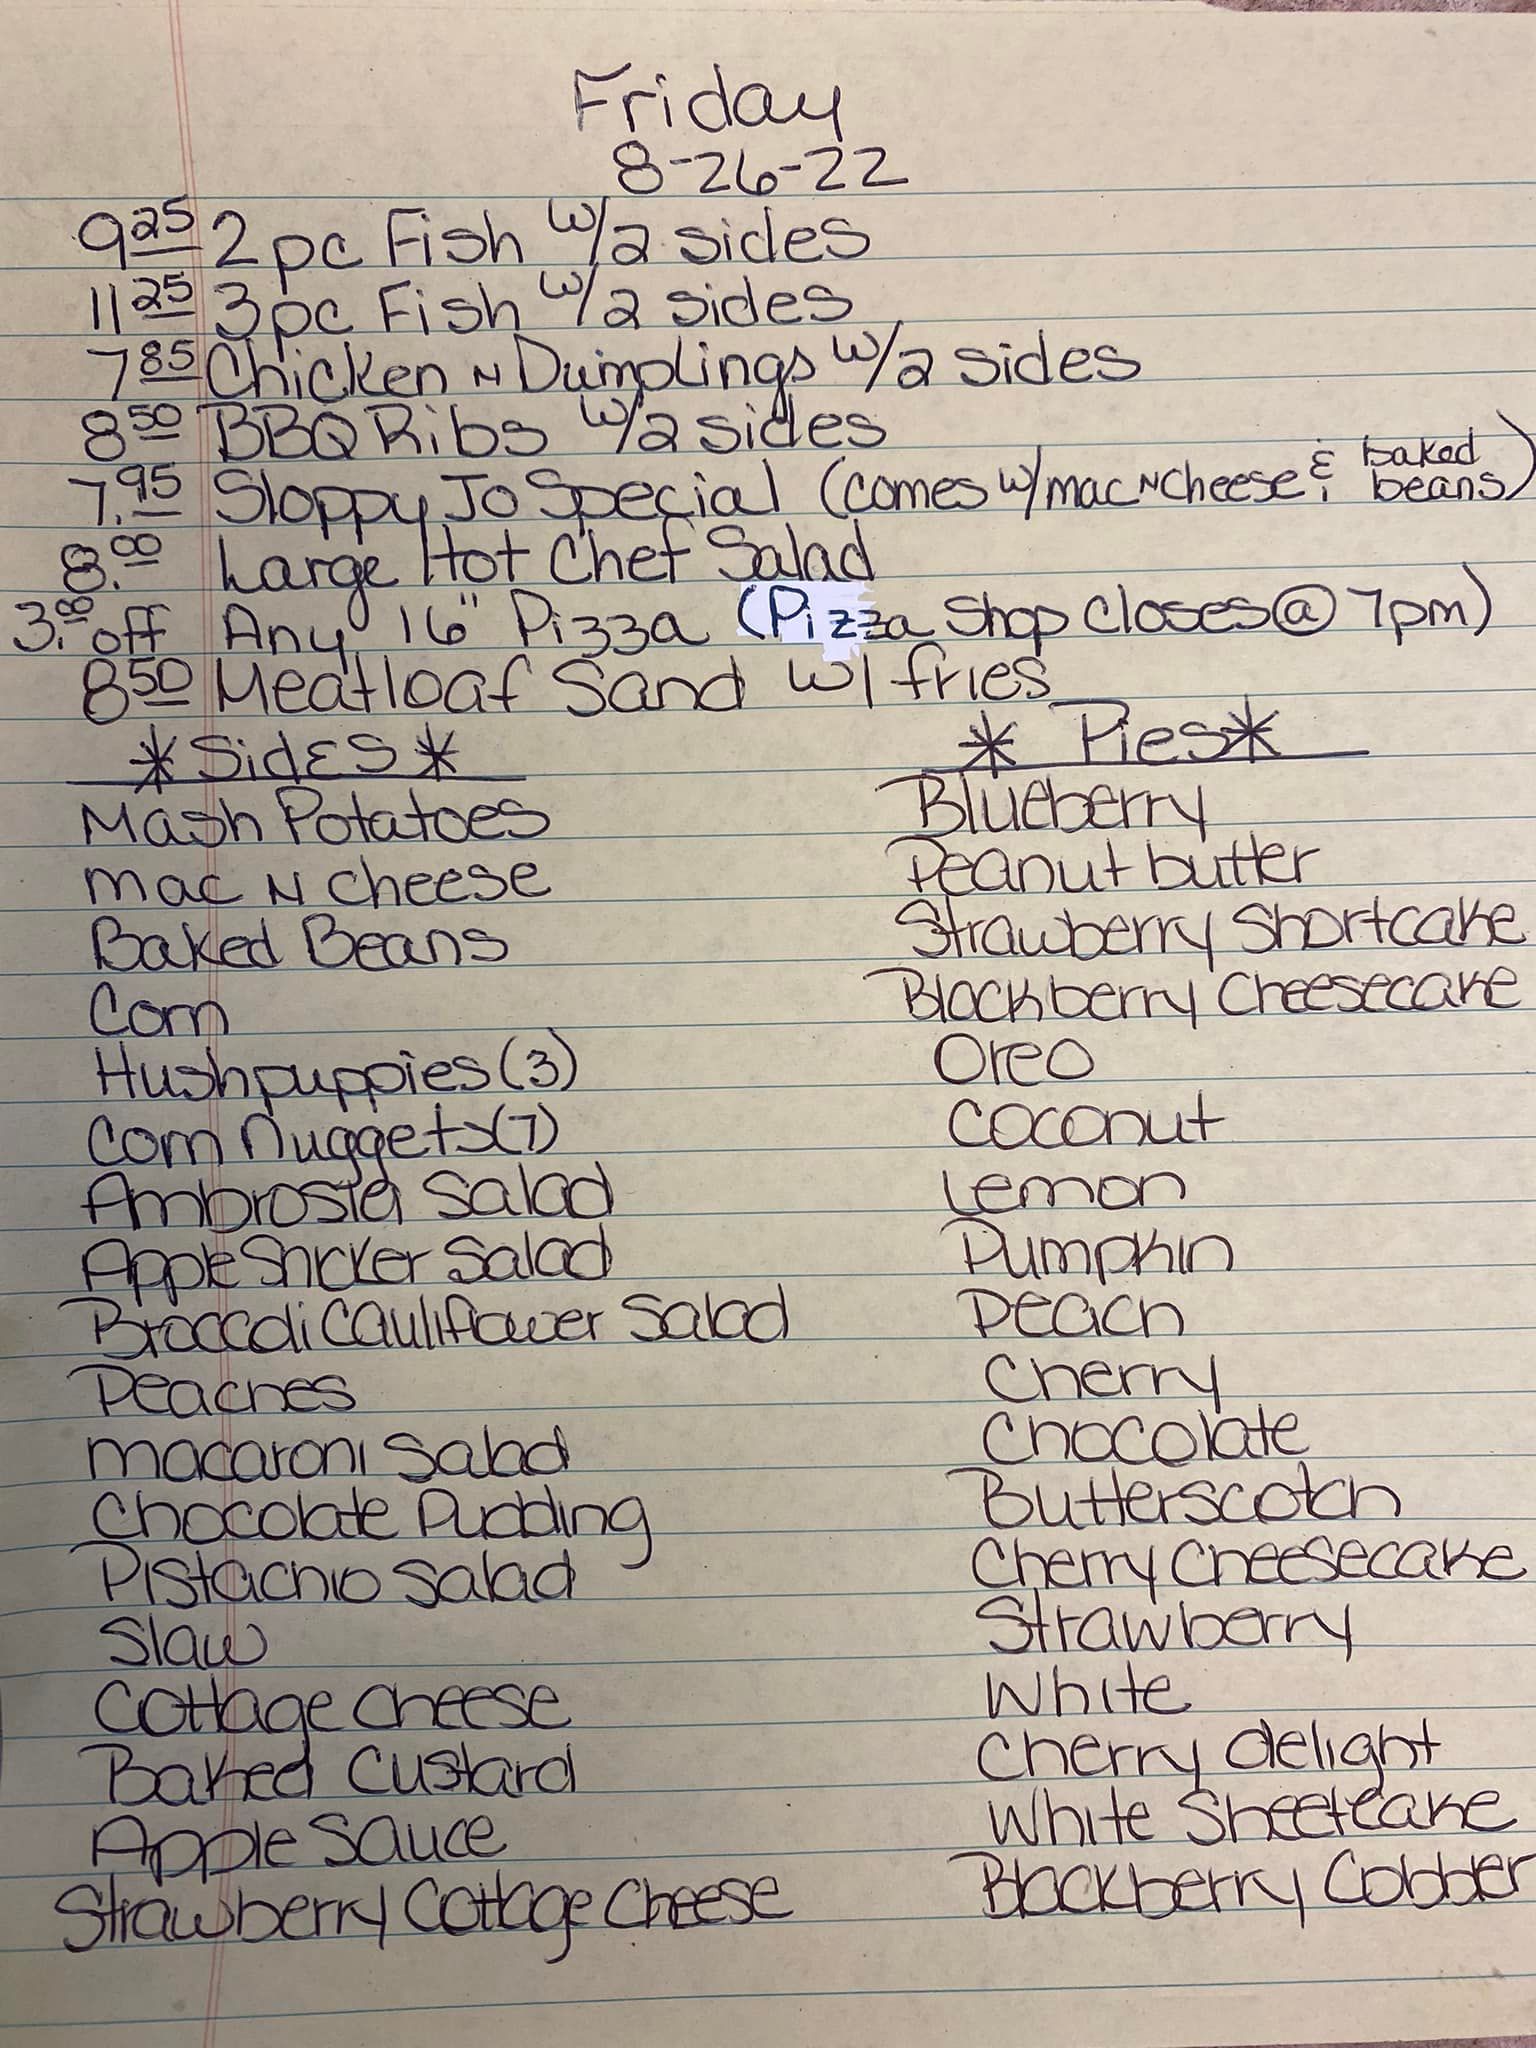 Friday
8-26-22
9.25 2 pc Fish w/2 sides
11.25 3pc Fish w/2 sides
7.85 Chicken N Dumplings w/2 sides
8.50 BBQ Ribs w/2 sides
7.95 Sloppy Jo Special (comes w/mac N cheese & baked beans)
8.00 Large Hot Chef Salad
3.00 off Any 16" Pizza (Pizza Shop closes @ 7pm)
8.50 Meatloaf Sand w/ fries
*Sides*
Mash Potatoes
Mac N cheese
Baked Beans
Corn
Hushpuppies (3)
Corn Nuggets (7)
Ambrosia Salad
Apple Snicker Salad
Broccoli Cauliflower Salad
Peaches
Macaroni Salad
Chocolate Pudding
Pistachio Salad
Slaw
Cottage Cheese
Baked Custard
Apple Sauce
Strawberry Cottage Cheese
* Pies*
Blueberry
Peanut butter
Strawberry Shortcake
Blackberry Cheesecake
Oreo
Coconut
Lemon
Pumpkin
Peach
Cherry
Chocolate
Butterscotch
Cherry Cheesecake
Strawberry
White
Cherry delight
White Sheetcake
Blackberry Cobbler